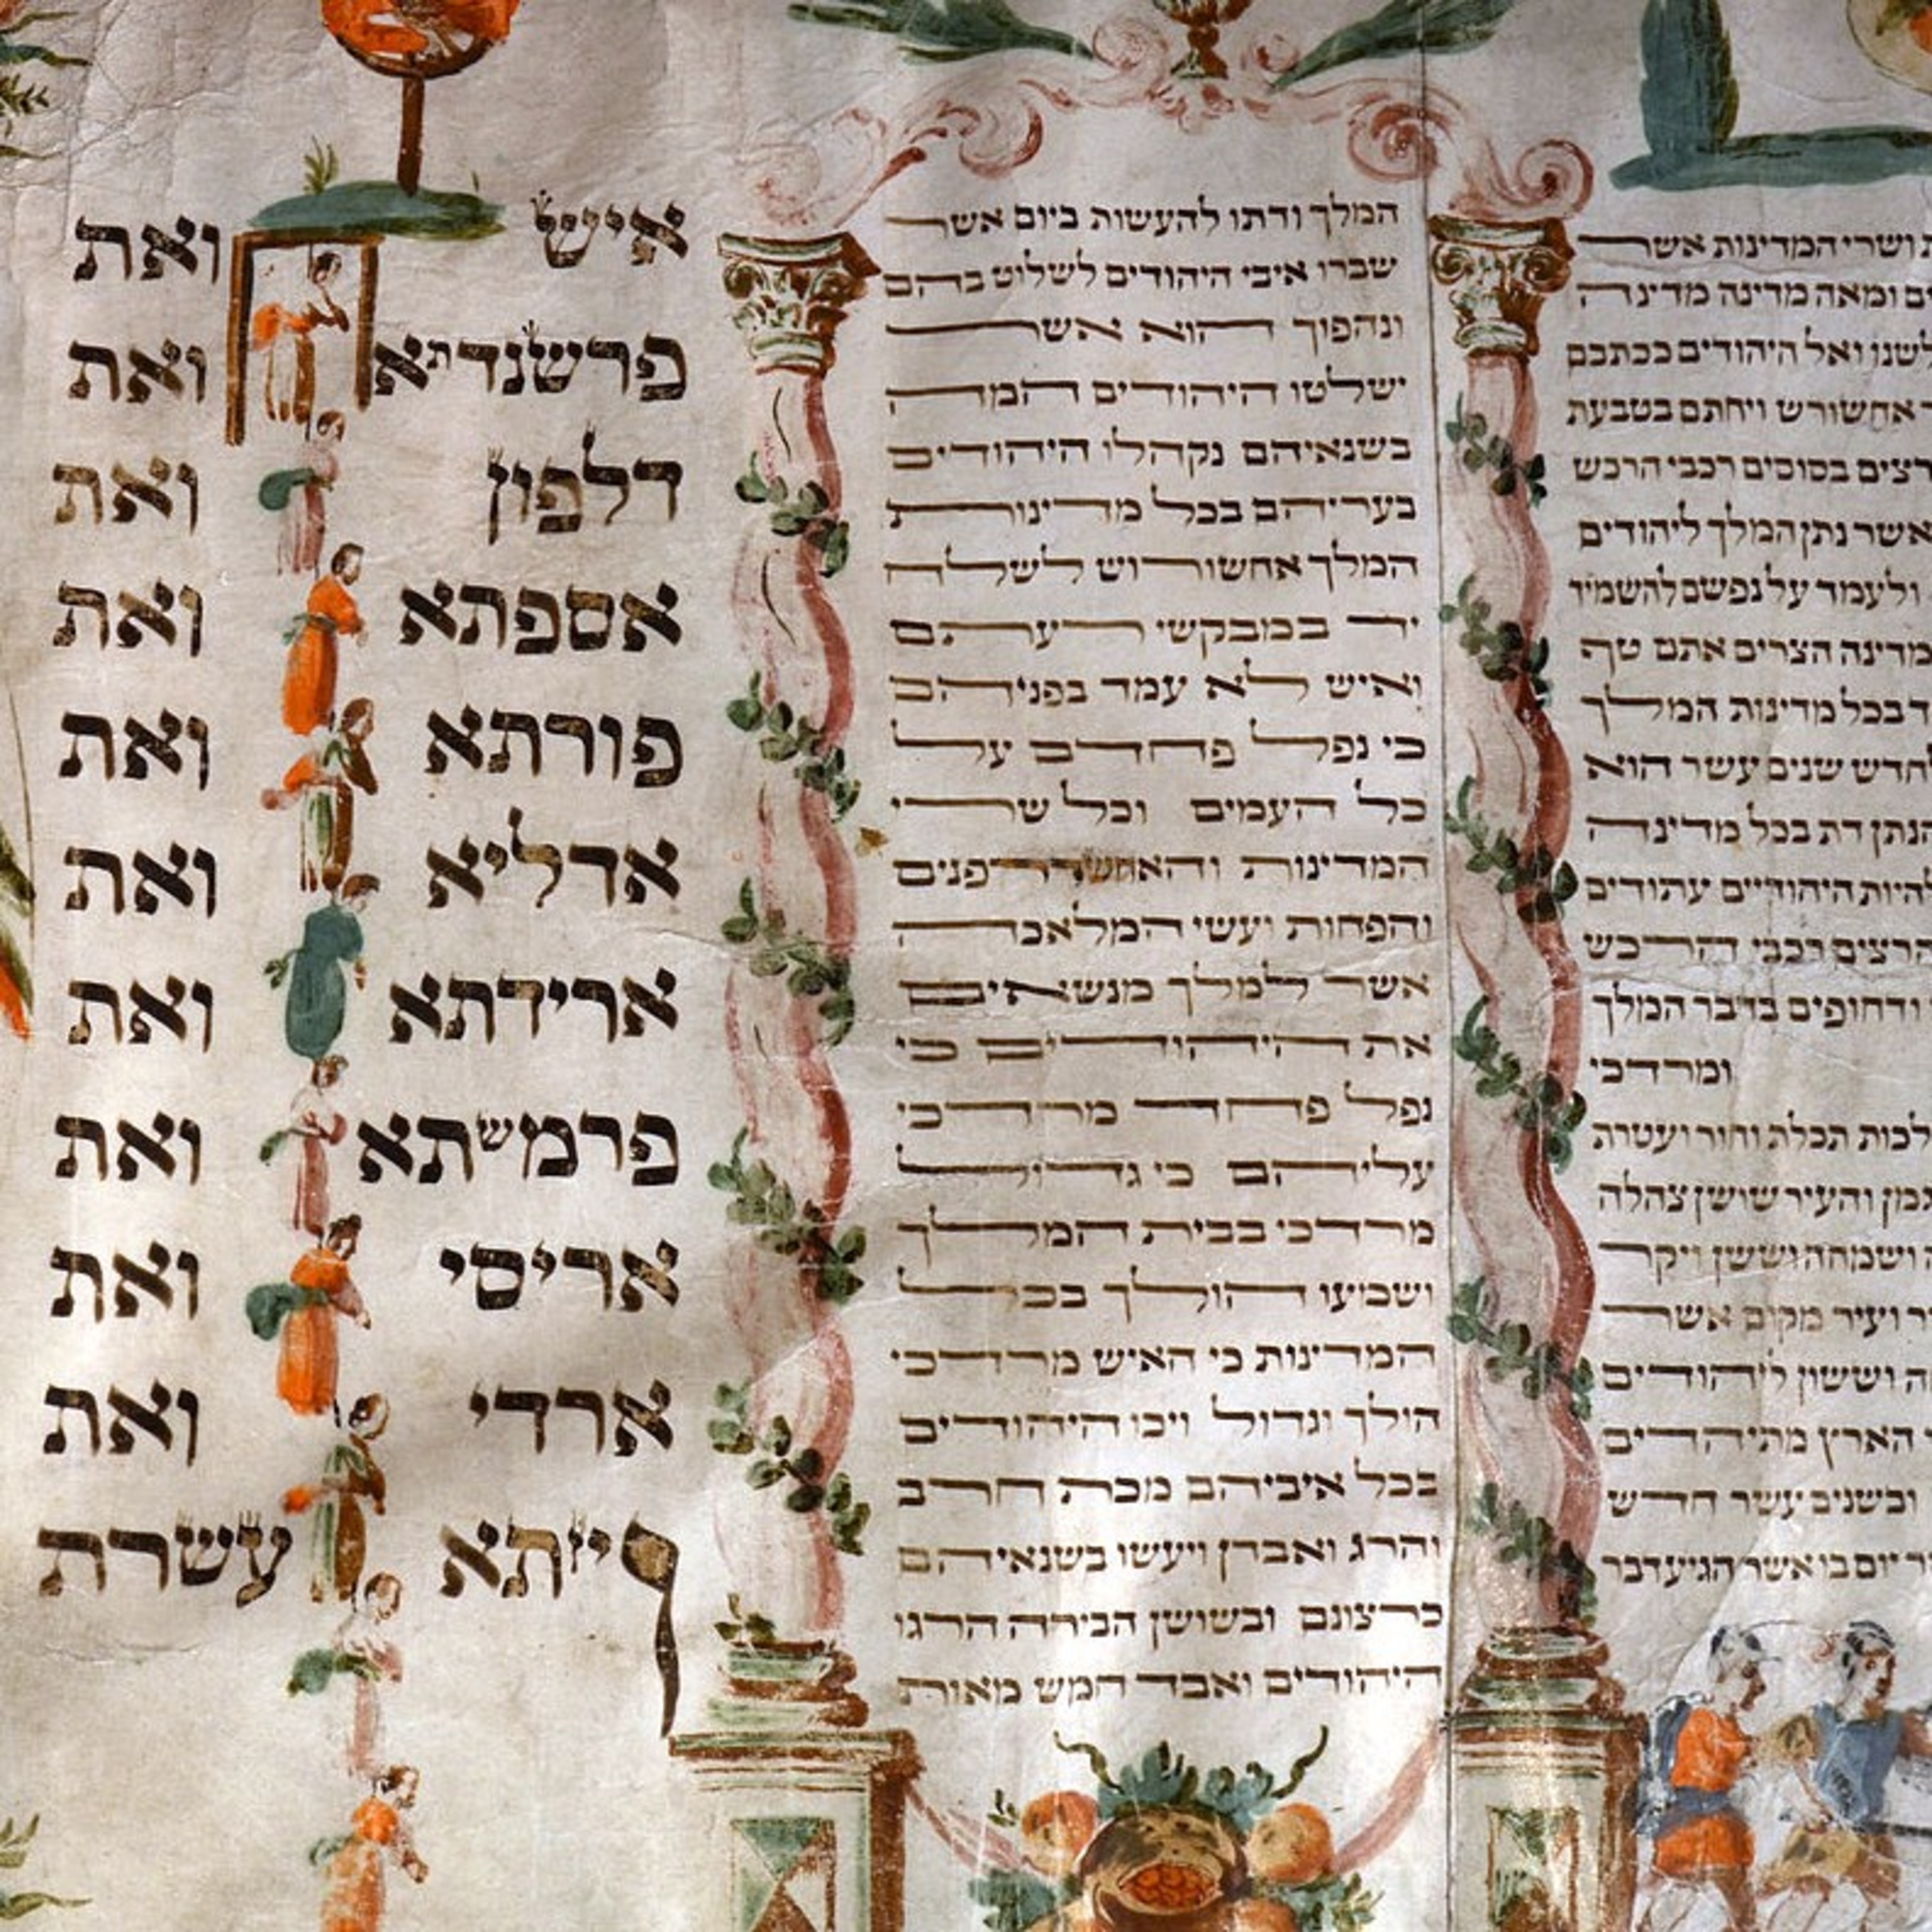 ושרי המדינות אשר
ומאה מדינה מדינה
ואל היהודים ככתבם
אחשורש ויחתם בטבעת
רצים בסוסים רכבי הרכש
אשר נתן המלך ליהודים
ולעמד על נפשם להשמיד
מדינה הצרים אתם טף
בכל מדינות המלך
לחדש שנים עשר הוא
הנתן דת בכל מדינה
להיות היהודיים עתודים
הרצים רכבי הרכש
ודחופים בדבר המלך
ומרדכי
לכות תכלת וחור ועטרה
גמן והעיר שושן צהלה
ושמחה וששן ויקר
ועיר מקום אשר
וששון ליהודים
הארץ מתיהדים
ובשנים עשר חדש
יום בו אשר הגיע דבר
המלך ודתו להעשות ביום אשר
שברו איבי היהודים לשלוט בהם
ונהפוך הוא אשר
ישלטו היהודים המה
בשנאיהם נקהלו היהודים
בעריהם בכל מדינות
המלך אחשורוש לשלח
יד במבקשי רעתם
ואיש לא עמד בפניהם
כי נפל פחדם על
כל העמים וכל שרי
המדינות והאחשדרפנים
והפחות ועשי המלאכה
אשר למלך מנשאים
את היהודים כי
נפל פחד מרדכי
עליהם כי גדול
מרדכי בבית המלך
ושמעו הולך בכל
המדינות כי האיש מרדכי
הולך וגדול ויכו היהודים
בכל איביהם מכת חרב
והרג ואבדן ויעשו בשנאיהם
כרצונם ובשושן הבירה הרגו
היהודים ואבד חמש מאות
איש ואת
פרשנדתא ואת
דלפון ואת
אספתא ואת
פורתא ואת
אדליא ואת
ארידתא ואת
פרמשתא ואת
אריסי ואת
ארדי ואת
ויזתא עשרת